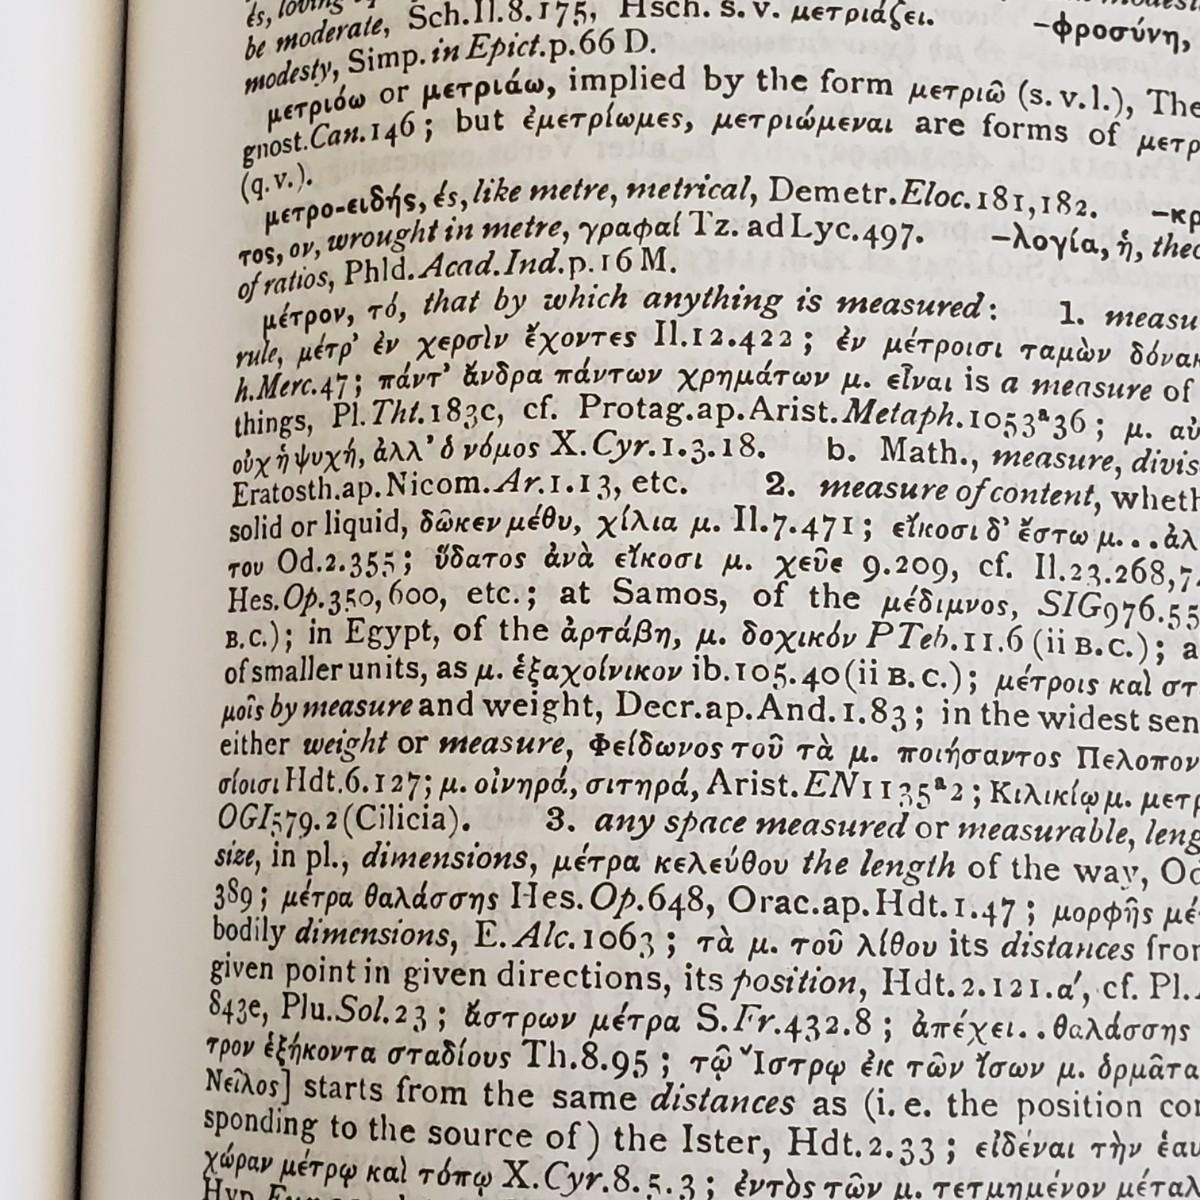 és, loving
be moderate, Sch.Il.8.175, Hsch. s.v. μετριάζει. –φροσύνη,
modesty, Simp.in Epict.p.66 D.
μετριόω or μετριάω, implied by the form μετριῶ (s.v.l.), The
gnost.Can.146; but ἐμετρίωμες, μετριώμεναι are forms of μετρ
(q.v.).
μετρο-ειδής, ές, like metre, metrical, Demetr.Eloc.181,182. –κρ
τος, ον, wrought in metre, γραφαί Tz. ad Lyc.497. –λογία, ἡ, theo
of ratios, Phld.Acad.Ind.p.16 M.
μέτρον, τό, that by which anything is measured: 1. measu
rule, μέτρ’ ἐν χερσὶν ἔχοντες Il.12.422; ἐν μέτροισι ταμὼν δόνακ
h.Merc.47; πάντ’ ἄνδρα πάντων χρημάτων μ. εἶναι is a measure of
things, Pl.Tht.183c, cf. Protag.ap.Arist.Metaph.1053ᵃ36; μ. αὐ
οὐχ ἡ ψυχή, ἀλλ’ ὁ νόμος X.Cyr.1.3.18. b. Math., measure, divis
Eratosth.ap.Nicom.Ar.1.13, etc. 2. measure of content, wheth
solid or liquid, δῶκεν μέθυ, χίλια μ. Il.7.471; εἴκοσι δ’ ἔστω μ...ἀλ
του Od.2.355; ὕδατος ἀνὰ εἴκοσι μ. χεῦε 9.209, cf. Il.23.268,7
Hes.Op.350,600, etc.; at Samos, of the μέδιμνος, SIG976.55
B.C.); in Egypt, of the ἀρτάβη, μ. δοχικόν PTeb.11.6 (ii B.C.); a
of smaller units, as μ. ἑξαχοίνικον ib.105.40 (ii B.C.); μέτροις καὶ στ
μοῖς by measure and weight, Decr.ap.And.1.83; in the widest sen
either weight or measure, Φείδωνος τοῦ τὰ μ. ποιήσαντος Πελοπον
σίοισι Hdt.6.127; μ. οἰνηρά, σιτηρά, Arist.EN1135ᵃ2; Κιλικίῳ μ. μετρ
OGI579.2 (Cilicia). 3. any space measured or measurable, leng
size, in pl., dimensions, μέτρα κελεύθου the length of the way, Od
389; μέτρα θαλάσσης Hes.Op.648, Orac.ap.Hdt.1.47; μορφῆς μέ
bodily dimensions, E.Alc.1063; τὰ μ. τοῦ λίθου its distances from
given point in given directions, its position, Hdt.2.121.α′, cf. Pl.
843e, Plu.Sol.23; ἄστρων μέτρα S.Fr.432.8; ἀπέχει..θαλάσσης
τρον ἑξήκοντα σταδίους Th.8.95; τῷ Ἴστρῳ ἐκ τῶν ἴσων μ. ὁρμᾶτα
Νεῖλος] starts from the same distances as (i.e. the position cor
sponding to the source of) the Ister, Hdt.2.33; εἰδέναι τὴν ἑαυ
χώραν μέτρῳ καὶ τόπῳ X.Cyr.8.5.3; ἐντὸς τῶν μ. τετμημένον μέταλ